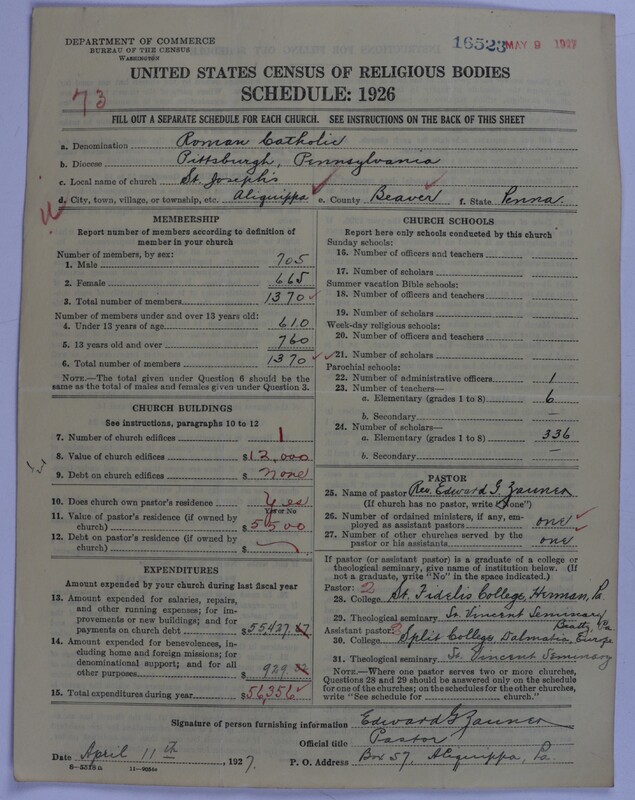 DEPARTMENT OF COMMERCE
BUREAU OF THE CENSUS
WASHINGTON
16523 MAY 9 1927
UNITED STATES CENSUS OF RELIGIOUS BODIES
SCHEDULE: 1926
73
FILL OUT A SEPARATE SCHEDULE FOR EACH CHURCH. SEE INSTRUCTIONS ON THE BACK OF THIS SHEET
a. Denomination Roman Catholic
b. Diocese Pittsburgh, Pennsylvania
c. Local name of church St. Joseph's
d. City, town, village, or township, etc. Aliquippa e. County Beaver f. State Penna.
MEMBERSHIP
Report number of members according to definition of member in your church
Number of members, by sex:
1. Male 705
2. Female 665
3. Total number of members 1370
Number of members under and over 13 years old:
4. Under 13 years of age 610
5. 13 years old and over 760
6. Total number of members 1370
NOTE.—The total given under Question 6 should be the same as the total of males and females given under Question 3.
CHURCH BUILDINGS
See instructions, paragraphs 10 to 12
7. Number of church edifices 1
8. Value of church edifices $12,000
9. Debt on church edifices $none
10. Does church own pastor's residence Yes
Yes or No
11. Value of pastor's residence (if owned by church) $5500
12. Debt on pastor's residence (if owned by church) $
EXPENDITURES
Amount expended by your church during last fiscal year
13. Amount expended for salaries, repairs, and other running expenses; for improvements or new buildings; and for payments on church debt $55,427.
14. Amount expended for benevolences, including home and foreign missions; for denominational support; and for all other purposes $929
15. Total expenditures during year $56,356
CHURCH SCHOOLS
Report here only schools conducted by this church
Sunday schools:
16. Number of officers and teachers
17. Number of scholars
Summer vacation Bible schools:
18. Number of officers and teachers
19. Number of scholars
Week-day religious schools:
20. Number of officers and teachers
21. Number of scholars
Parochial schools:
22. Number of administrative officers 1
23. Number of teachers—
a. Elementary (grades 1 to 8) 6
b. Secondary —
24. Number of scholars—
a. Elementary (grades 1 to 8) 336
b. Secondary —
PASTOR
25. Name of pastor Rev. Edward G. Zauner
(If church has no pastor, write "None")
26. Number of ordained ministers, if any, employed as assistant pastors one
27. Number of other churches served by the pastor or his assistants one
If pastor (or assistant pastor) is a graduate of a college or theological seminary, give name of institution below. (If not a graduate, write "No" in the space indicated.)
Pastor: 2
28. College St. Fidelis College, Herman, Pa.
29. Theological seminary St. Vincent Seminary Beatty, Pa.
Assistant pastor:
30. College Split College, Dalmatia, Europe
31. Theological seminary St. Vincent Seminary
NOTE.—Where one pastor serves two or more churches, Questions 28 and 29 should be answered only on the schedule for one of the churches; on the schedules for the other churches, write "See schedule for church."
Signature of person furnishing information Edward G Zauner
Official title Pastor
Date April 11th, 1927. P. O. Address Box 57, Aliquippa, Pa.
8—5318a 11—9034a